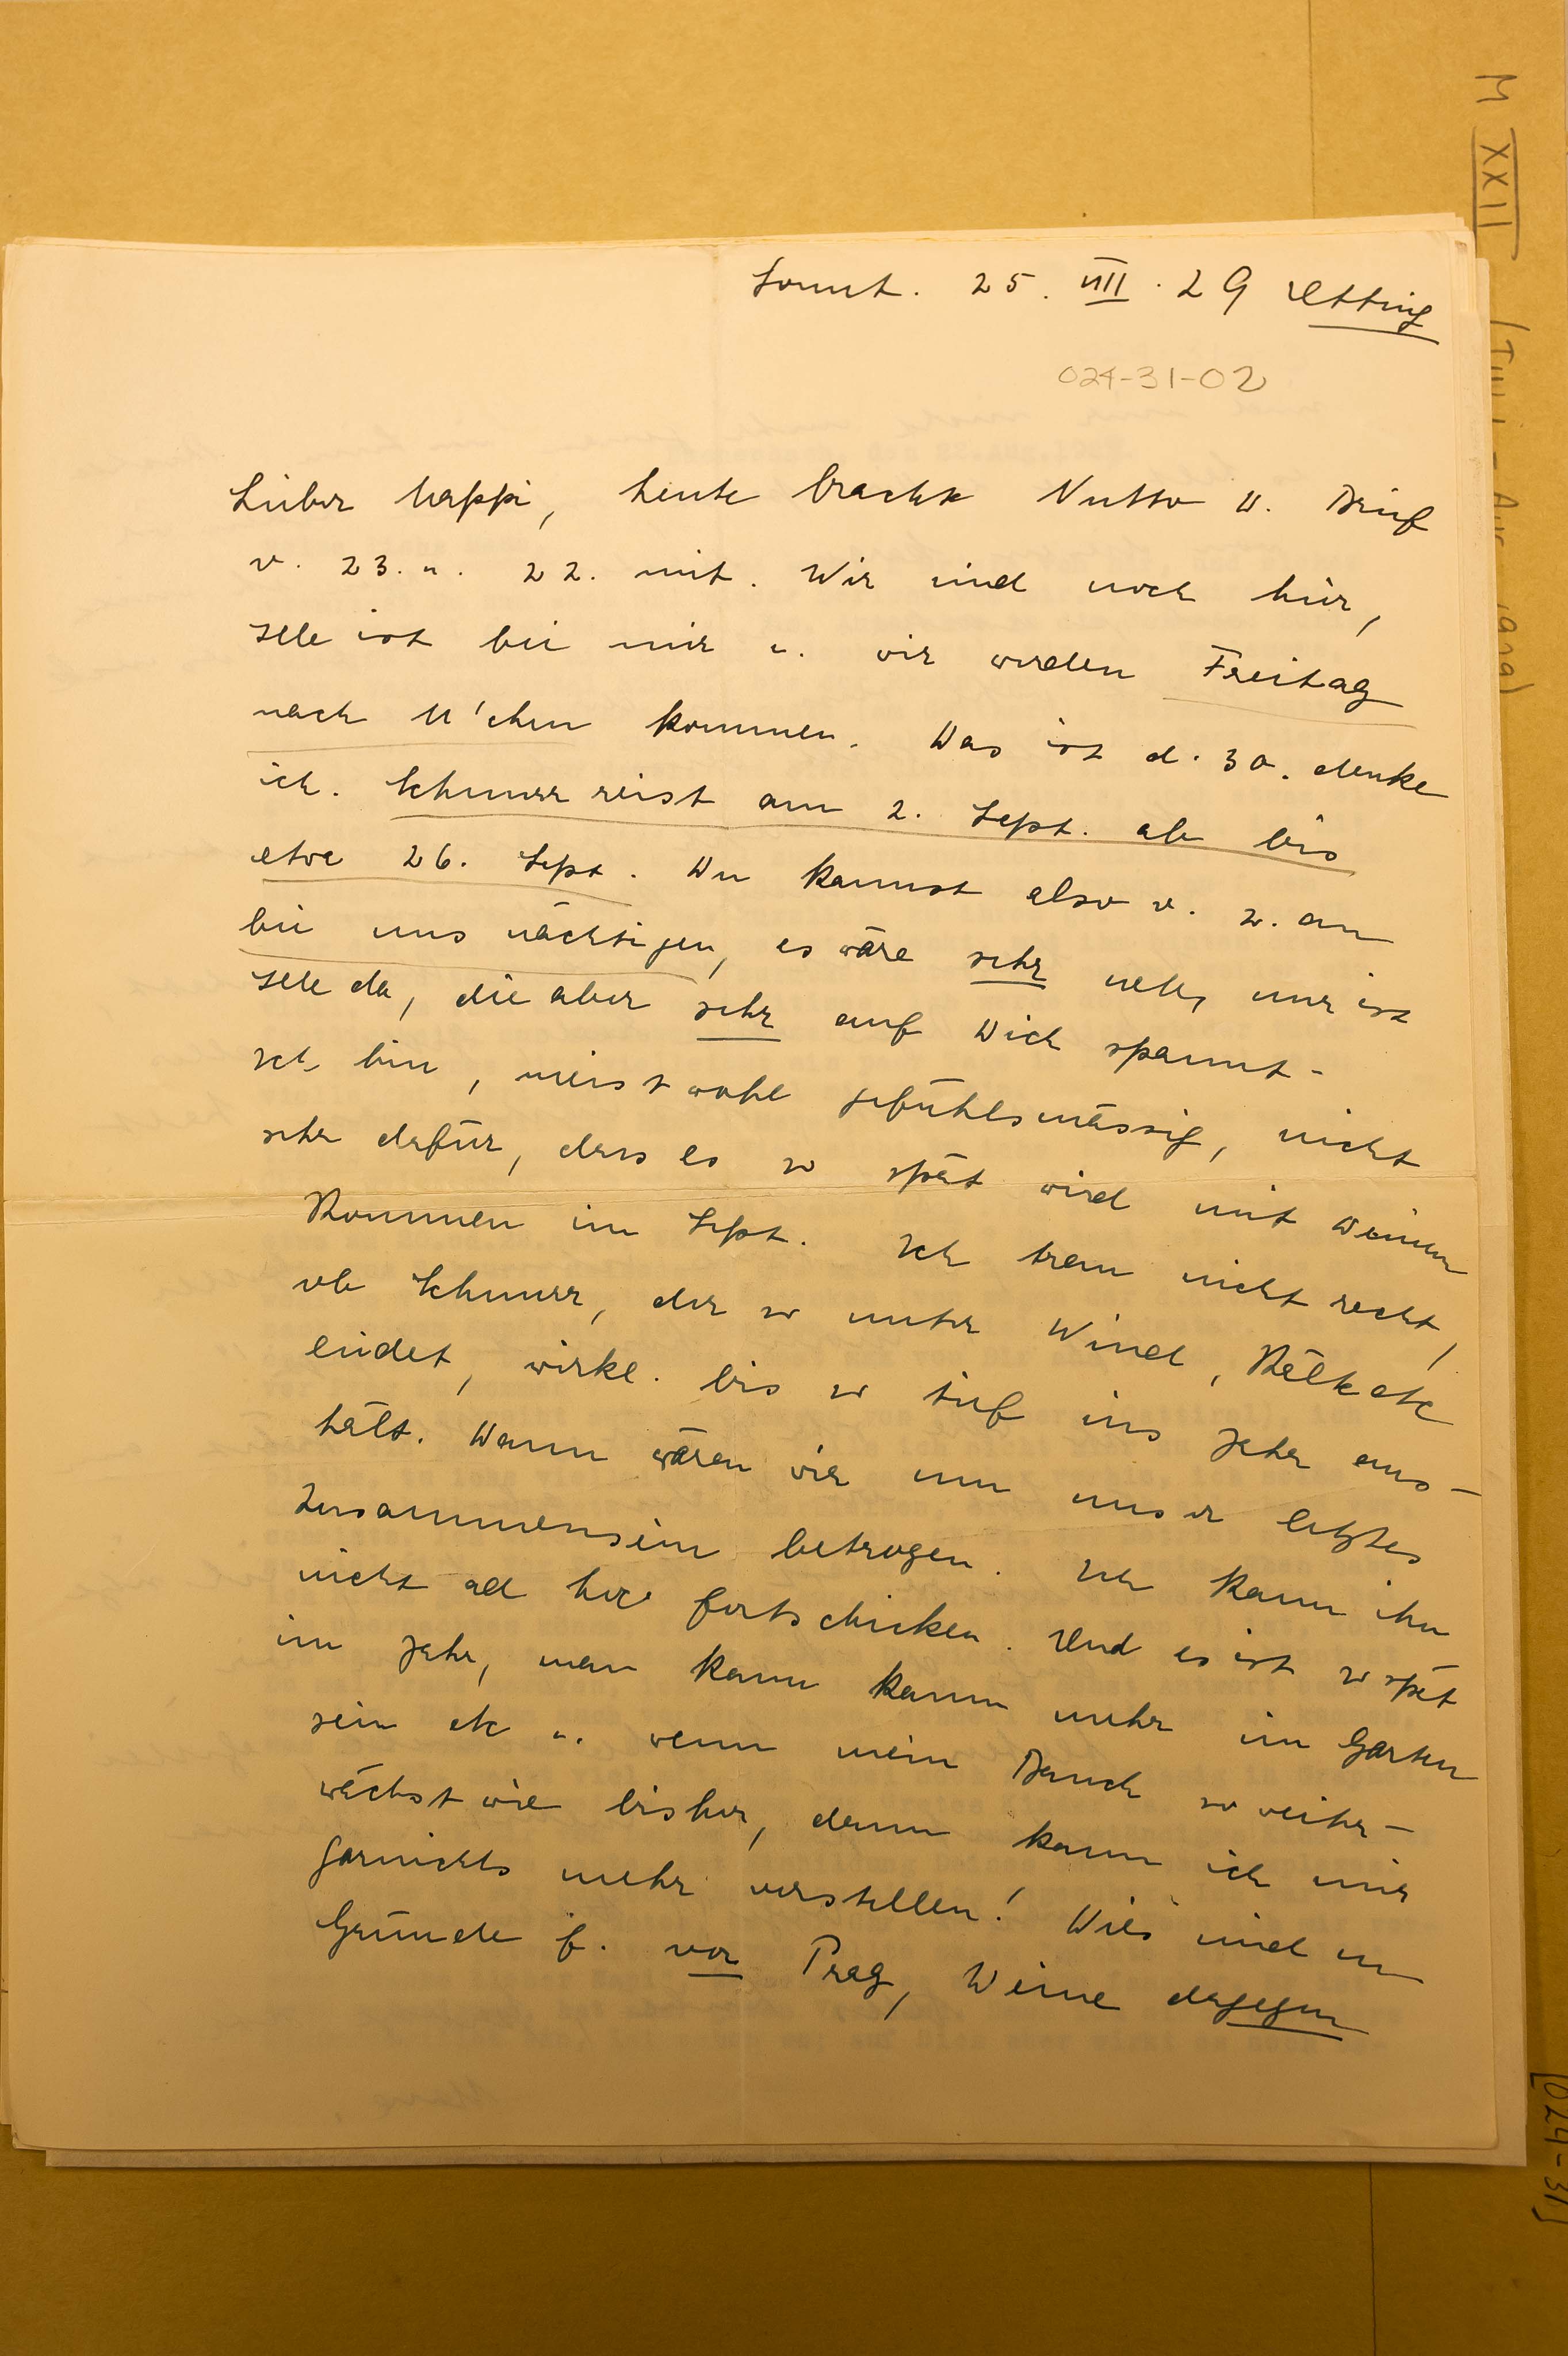 Sonnt. 25. VIII. 29 Utting
024-31-02
Lieber Mappi, heute brachte Nutto D. Brief
v. 23. u. 22. mit. Wir sind noch hier,
Ille ist bei mir u. wir werden Freitag
nach M'chen kommen. Das ist d. 30. denke
ich. Schnurr reist am 2. Sept. ab bis
etwa 26. Sept. Du kannst also v. 2. an
bei uns nächtigen, es wäre sehr nett, nur ist
Ille da, die aber sehr auf Dich spannt -
Ich bin, meist wohl gefühlsmässig, nicht
sehr dafür, dass es so spät wird mit Deinem
Kommen im Sept. Ich trau nicht recht,
ob Schnurr, der so unter Wind, Kälte etc
leidet, wirkl. bis so tief ins Jahr aus-
hält. Dann wären wir um unser letztes
Zusammensein betrogen. Ich kann ihn
nicht ad hoc fortschicken. Und es ist so spät
im Jahr, man kann kaum mehr im Garten
sein etc u. wenn mein Bauch so weiter-
wächst wie bisher, dann kann ich mir
garnichts mehr vorstellen! Dies sind m
Gründe f. vor Prag, Deine dagegen
M XXII
[024-31]